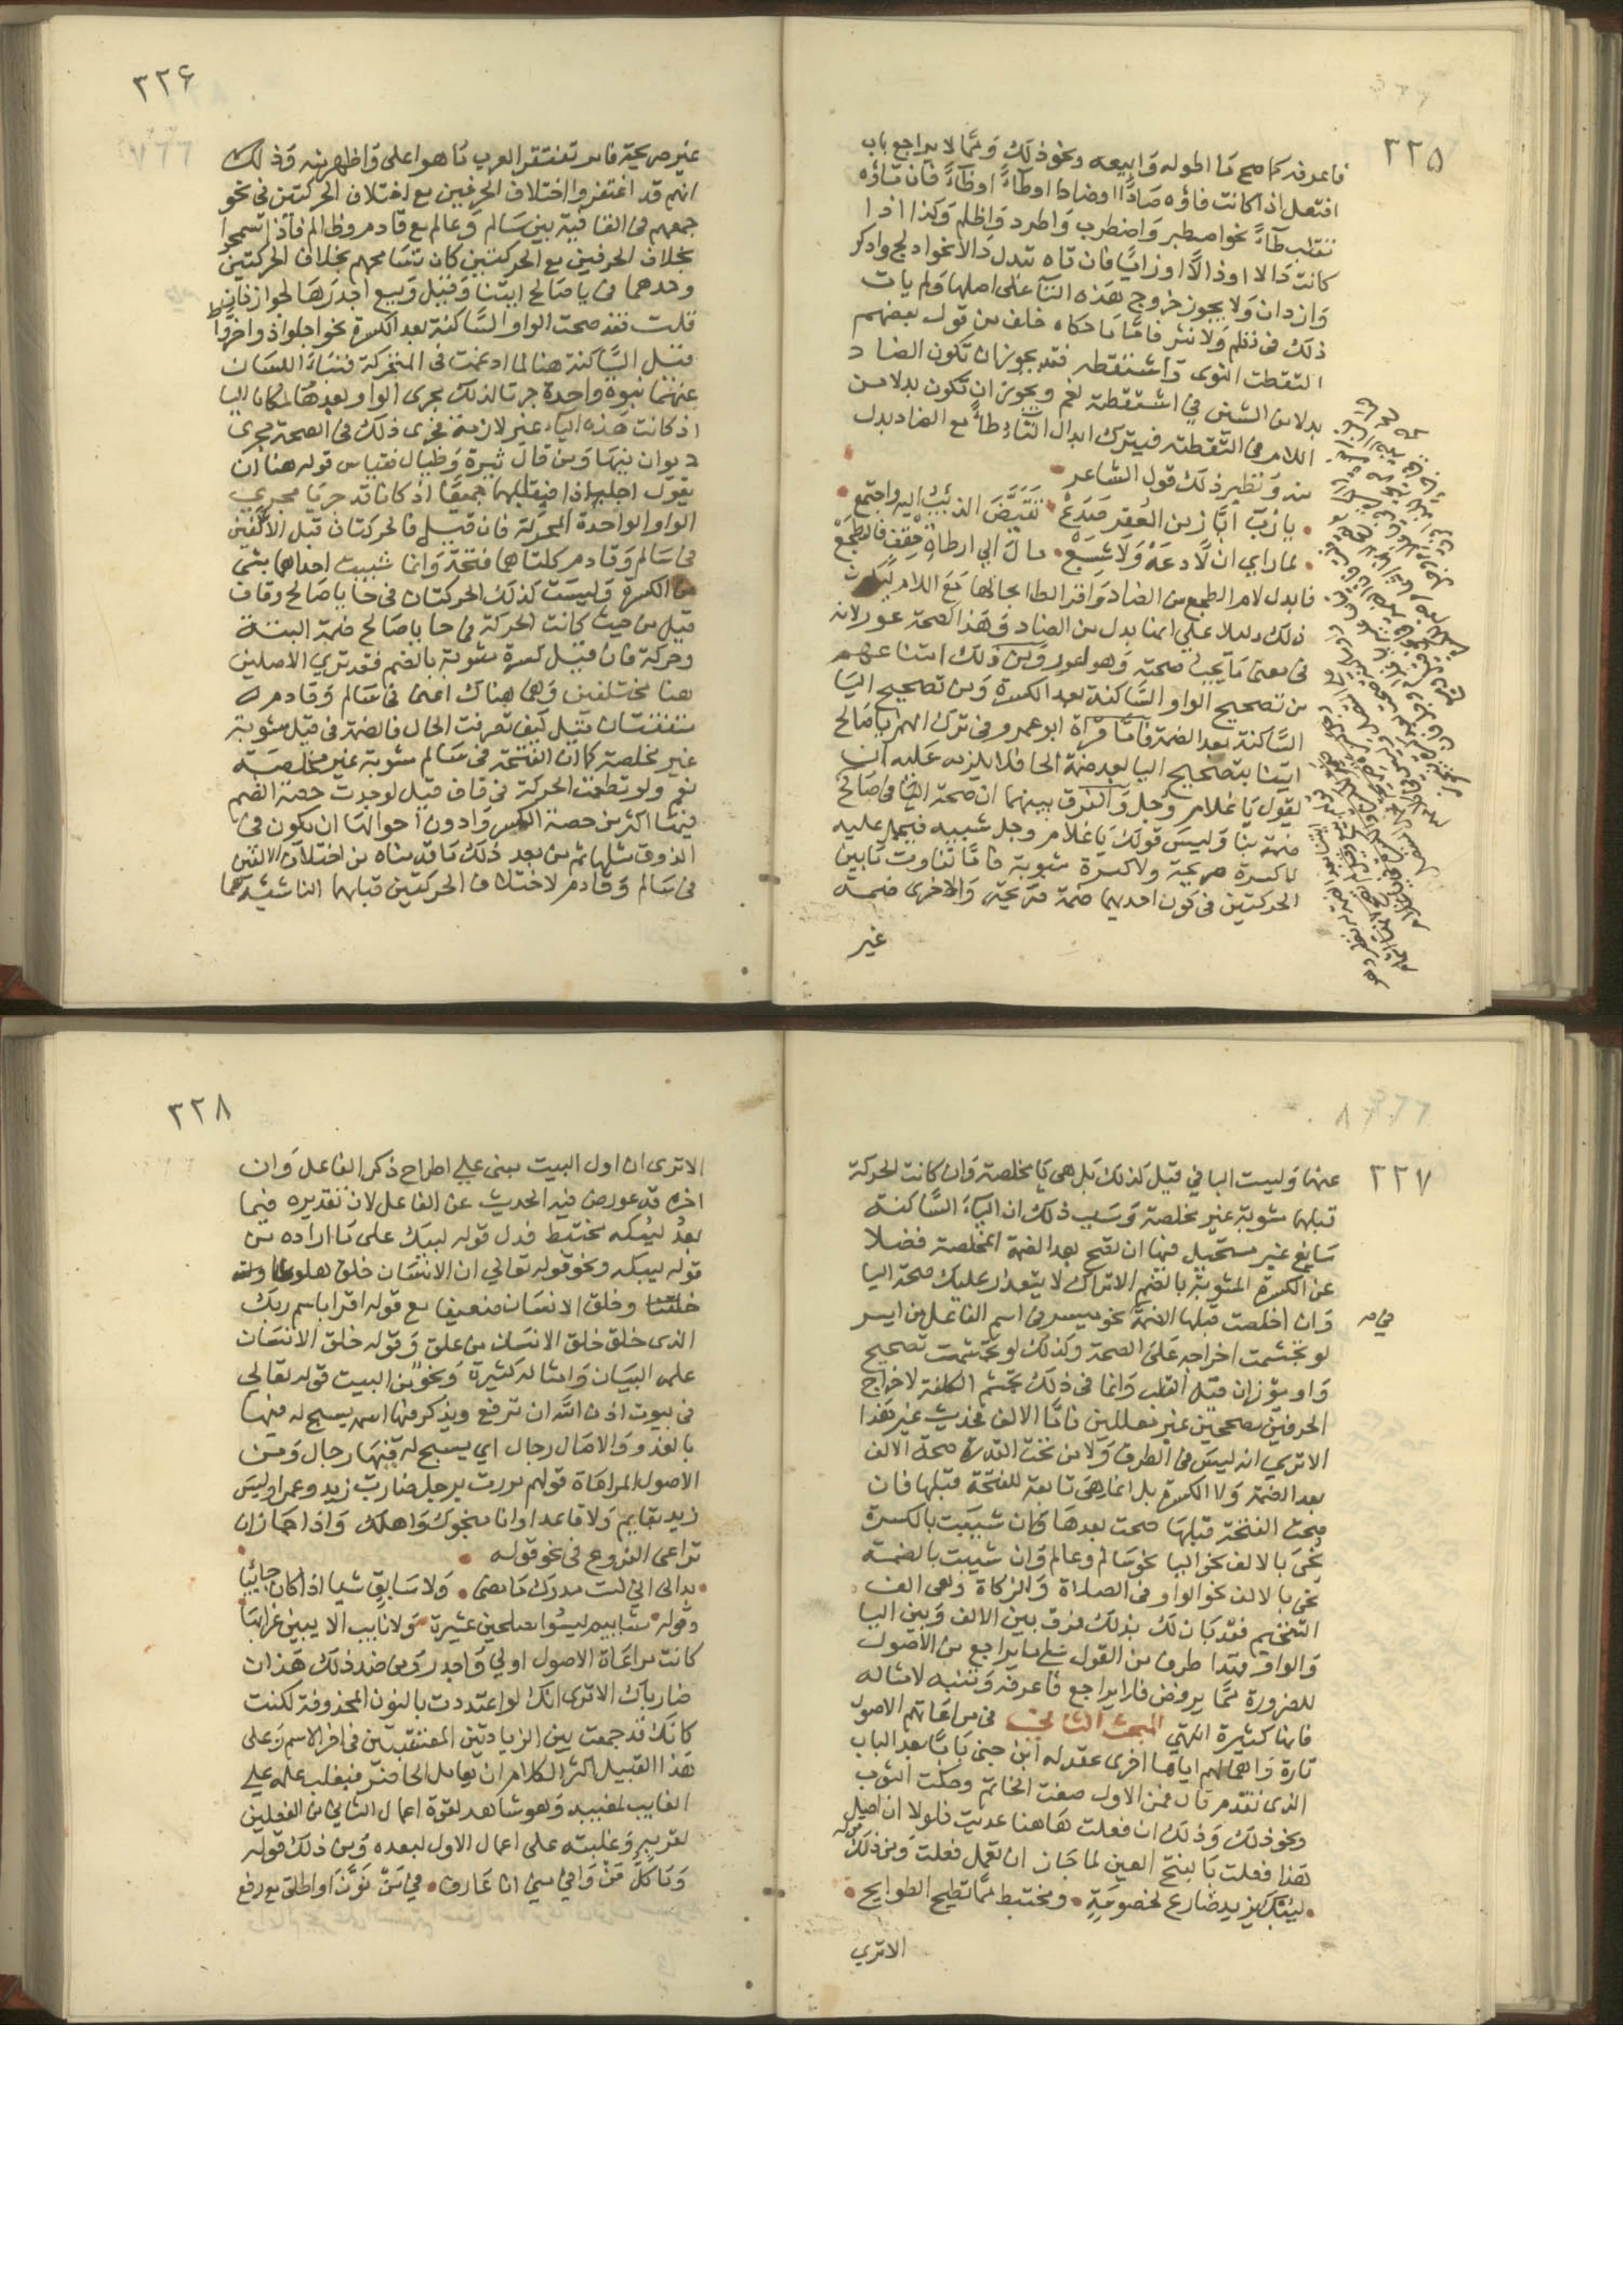 ٣٢٥
فاعرفه كما صح ما اطوله وابيعه ونحو ذلك ومما لا يراجع باب
افتعل اذا كانت فاؤه صادًا او ضادا او طاءً او ظاءً فان تاؤه
تقلب طاءً نحو اصطبر واضطرب واطرد واظلم وكذا اذا
كانت دالا او ذالًا او زايًا فان تاه تبدل دالا نحوا دلج وادكر
وازدان ولا يجوز خروج هذه التآ على اصلها ولم يات
ذلك في نظم ولا نثر فامّا ما حكاه خلف من قول بعضهم
التقطت النوى واشتقطه فقد يجوز ان تكون الضاد
بدلا من الشين في اشتقطته نعم ويجوز ان تكون بدلا من
اللام في التقطته فيترك ابدال التاء طاءً مع الضاد بدل
منه ونظير ذلك قول الشاعر
يا رُبّ ابّاز من العُفر صَدَعْ تَقَبَّضَ الذئب اليه واجتمع
لما راي ان لّا دَعَهْ وَلا شِبَعْ مال الي ارطاة حِقف فالطجَعْ
فابدل لام الطجع من الضاد واقر الطا بحالها مع اللام ليكون
ذلك دليلا علي انها بدل من الضاد وهذا كصحة عور لانه
في معنى ما يجب صحته وهو اعور ومن ذلك امتناعهم
من تصحيح الواو السَّاكنة بعد الكسرة ومن تصحيح اليا
السَّاكنة بعد الضمة فامّا قراة ابو عمرو في ترك الهمز يا صالح
ايتنا بتصحيح اليا بعد ضمة الحا فلا يلزمه عليه ان
يقول يا غلام وجل والفرق بينهما ان صحة اليا في صالح
ضمة بنا وليس قولك يا غلام وجل شبيبه فيحمل عليه
لا كسرة صريحة ولا كسرة مشوبة فامّا تفاوت مابين
الحركتين في كون احديهما ضمة صريحة والاخرى ضمة
غير
٣٢٦
غير صريحة فامر تغتفر العرب ما هو اعلى واظهر منه وذلك
انهم قد اغتفروا اختلاف الحرفين مع اختلاف الحركتين في نحو
جمعهم في القافية بين سالم وعالم مع قادم وظالم فاذا تسمحوا
بخلاف الحرفين مع الحركتين كان تسامحهم بخلاف الحركتين
وحدهما في يا صالح ايتنا وقيل وبيع اجدر بالجواز فان
قلت فقد صحت الواو السَّاكنة بعد الكسرة نحو اجلواذ واخرواط
قيل السَّاكنة هنا لما ادغمت في المتحركة فنبا اللسان
عنهما نبوة واحدة جرتا لذلك مجرى الواو لبعدها لمكان اليا
اذ كانت هذه الياء غير لازمة فجرى ذلك في الصحة مجرى
ديوان فيها ومن قال ثيرة وطيال فقياس قوله هنا ان
يقول اجليّاذا فيقلبهما جميعًا اذ كانتا قد جريا مجري
الواو الواحدة المتحركة فان قيل فالحركتان قبل الالفين
في سالم وقادم كلتاهما فتحة وانما شيبت احداهما بشي
من الكسرة وليست كذلك الحركتان في حا يا صالح وقاف
قيل من حيث كانت الحركة في حا يا صالح ضمة البتة
وحركة قاف قيل كسرة مشوبة بالضم فقد تري الاصلين
هنا مختلفين وهما هناك اعني في سالم وقادم
متفقتان قيل كيف تصرفت الحال فالضمة في قيل مشوبة
غير مخلصة كما ان الفتحة في سالم مشوبة غير مخلصة
نعم ولو تطعمت الحركة في قاف قيل لوجدت حصة الضم
فيها اكثر من حصة الكسر وادون احوالها ان يكون في
الذوق مثلها ثم من بعد ذلك ما قدمناه من اختلاف الالفين
في سالم وقادم لاختلاف الحركتين قبلهما الناشئة هما
٣٢٧
عنها وليست اليا في قيل كذلك بل هي يا مخلصة وان كانت الحركة
قبلها مشوبة غير مخلصة وسبب ذلك ان الياءَ السَّاكنة
سايغ غير مستحيل فيها ان تصح بعد الضمة المخلصة فضلا
عن الكسرة المشوبة بالضم الا تراك لا يتعذر عليك صحة اليا
وان اخلصت قبلها الضمة نحو ميسر في اسم الفاعل من ايسر
لو تجشمت اخراجه على الصحة وكذلك لو تجشمت تصحيح
واو موزان قبل القلب وانما في ذلك تجشم الكلفة لاخراج
الحرفين مصححين غير معللين فامّا الالف فحديث غير هذا
الا تري انه ليس في الطرق ولا من تحت القدرة صحة الالف
بعد الضمة ولا الكسرة بل انما هي تابعة للفتحة قبلها فان
صحت الفتحة قبلها صحت بعدها وان شيبت بالكسرة
نُحي بالالف نحو اليا نحو سالم وعالم وان شيبت بالضمة
نحي بالالف نحو الواو في الصلاة والزكاة وهي الف
التفخيم فقد بان لك بذلك فرق بين الالف وبين اليا
والواو فهذا طرف من القول على ما يراجع من الاصول
للضرورة مما يرفض فلا يراجع فاعرفه وتنبه لامثاله
فانها كثيرة انتهي المبحث الثالث في مراعاتهم الاصول
تارة واهمالهم اياها اخرى عقد له ابن جنى بابًا بعد الباب
الذي تقدم قال فمن الاول صغت الخاتم وحكت الثوب
ونحو ذلك وذلك ان فعلت هاهنا عديت فلولا ان اصل
هذا فعلت بفتح العين لما جاز ان تعمل فعلت ومن ذلك قوله
ليُبْكَ يزيد ضارع لخصومةٍ ومختبط مما تطيح الطوايح
الا تري
٣٢٨
الا ترى ان اول البيت مبنى علي اطراح ذكر الفاعل وان
اخره قد عورض فيه الحديث عن الفاعل لان تقديره فيما
بعدُ ليبكه مختبط فدل قوله ليبك على ما اراده من
قوله ليبكه ونحو قوله تعالي ان الانسان خلق هلوعا
وخلق الانسان ضعيفا مع قوله اقرا باسم ربك
الذي خلق خلق الانسان من علق وقوله خلق الانسان
علمه البيان وامثاله كثيرة ونحوٌ من البيت قوله تعالي
في بيوت اذن الله ان ترفع ويذكر فيها اسمه يسبح له فيها
بالغدو والاصال رجال اي يسبح له فيها رجال ومن
الاصول المراعاة قولهم مررت برجل ضارب زيد وعمرا وليس
زيد بقايم ولا قاعدا وانا منجوك واهلك واذا جاز ان
تراعى الفروع في نحو قوله
بدا لي اني لست مدرك ما مضى ولا سابق شيا اذا كان جائيا
وقوله مشاييم ليسوا مصلحين عشيرة ولا ناعب الا ببين غرابها
كانت مراعاة الاصول اولي واجدر ومن ضد ذلك هذان
ضارباك الا ترى انك لو اعتددت بالنون المحذوفة لكنت
كانك قد جمعت بين الزيادتين المعتقبتين في اخر الاسم وعلى
هذا القبيل اكثر الكلام ان يعامل الحاضر فيغلب حكمه علي
الغايب لمغيبه وهو شاهد لقوة اعمال الثاني من الفعلين
لقربه وغلبته على اعمال الاول لبعده ومن ذلك قوله
وما كل مَنْ وافي مِني انا عارف في مَنْ نوّن او اطلق مع رفع